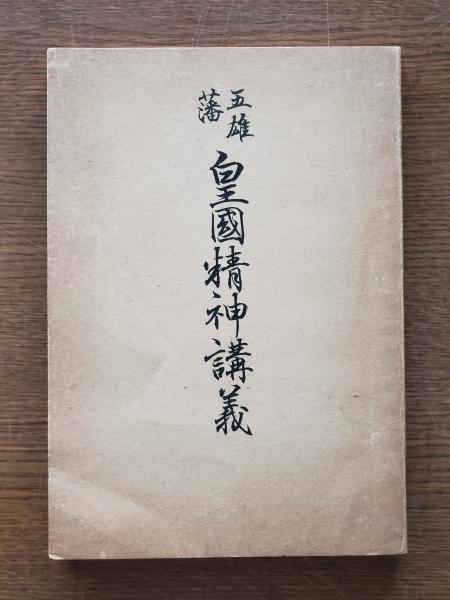 五雄
藩
皇國精神講義